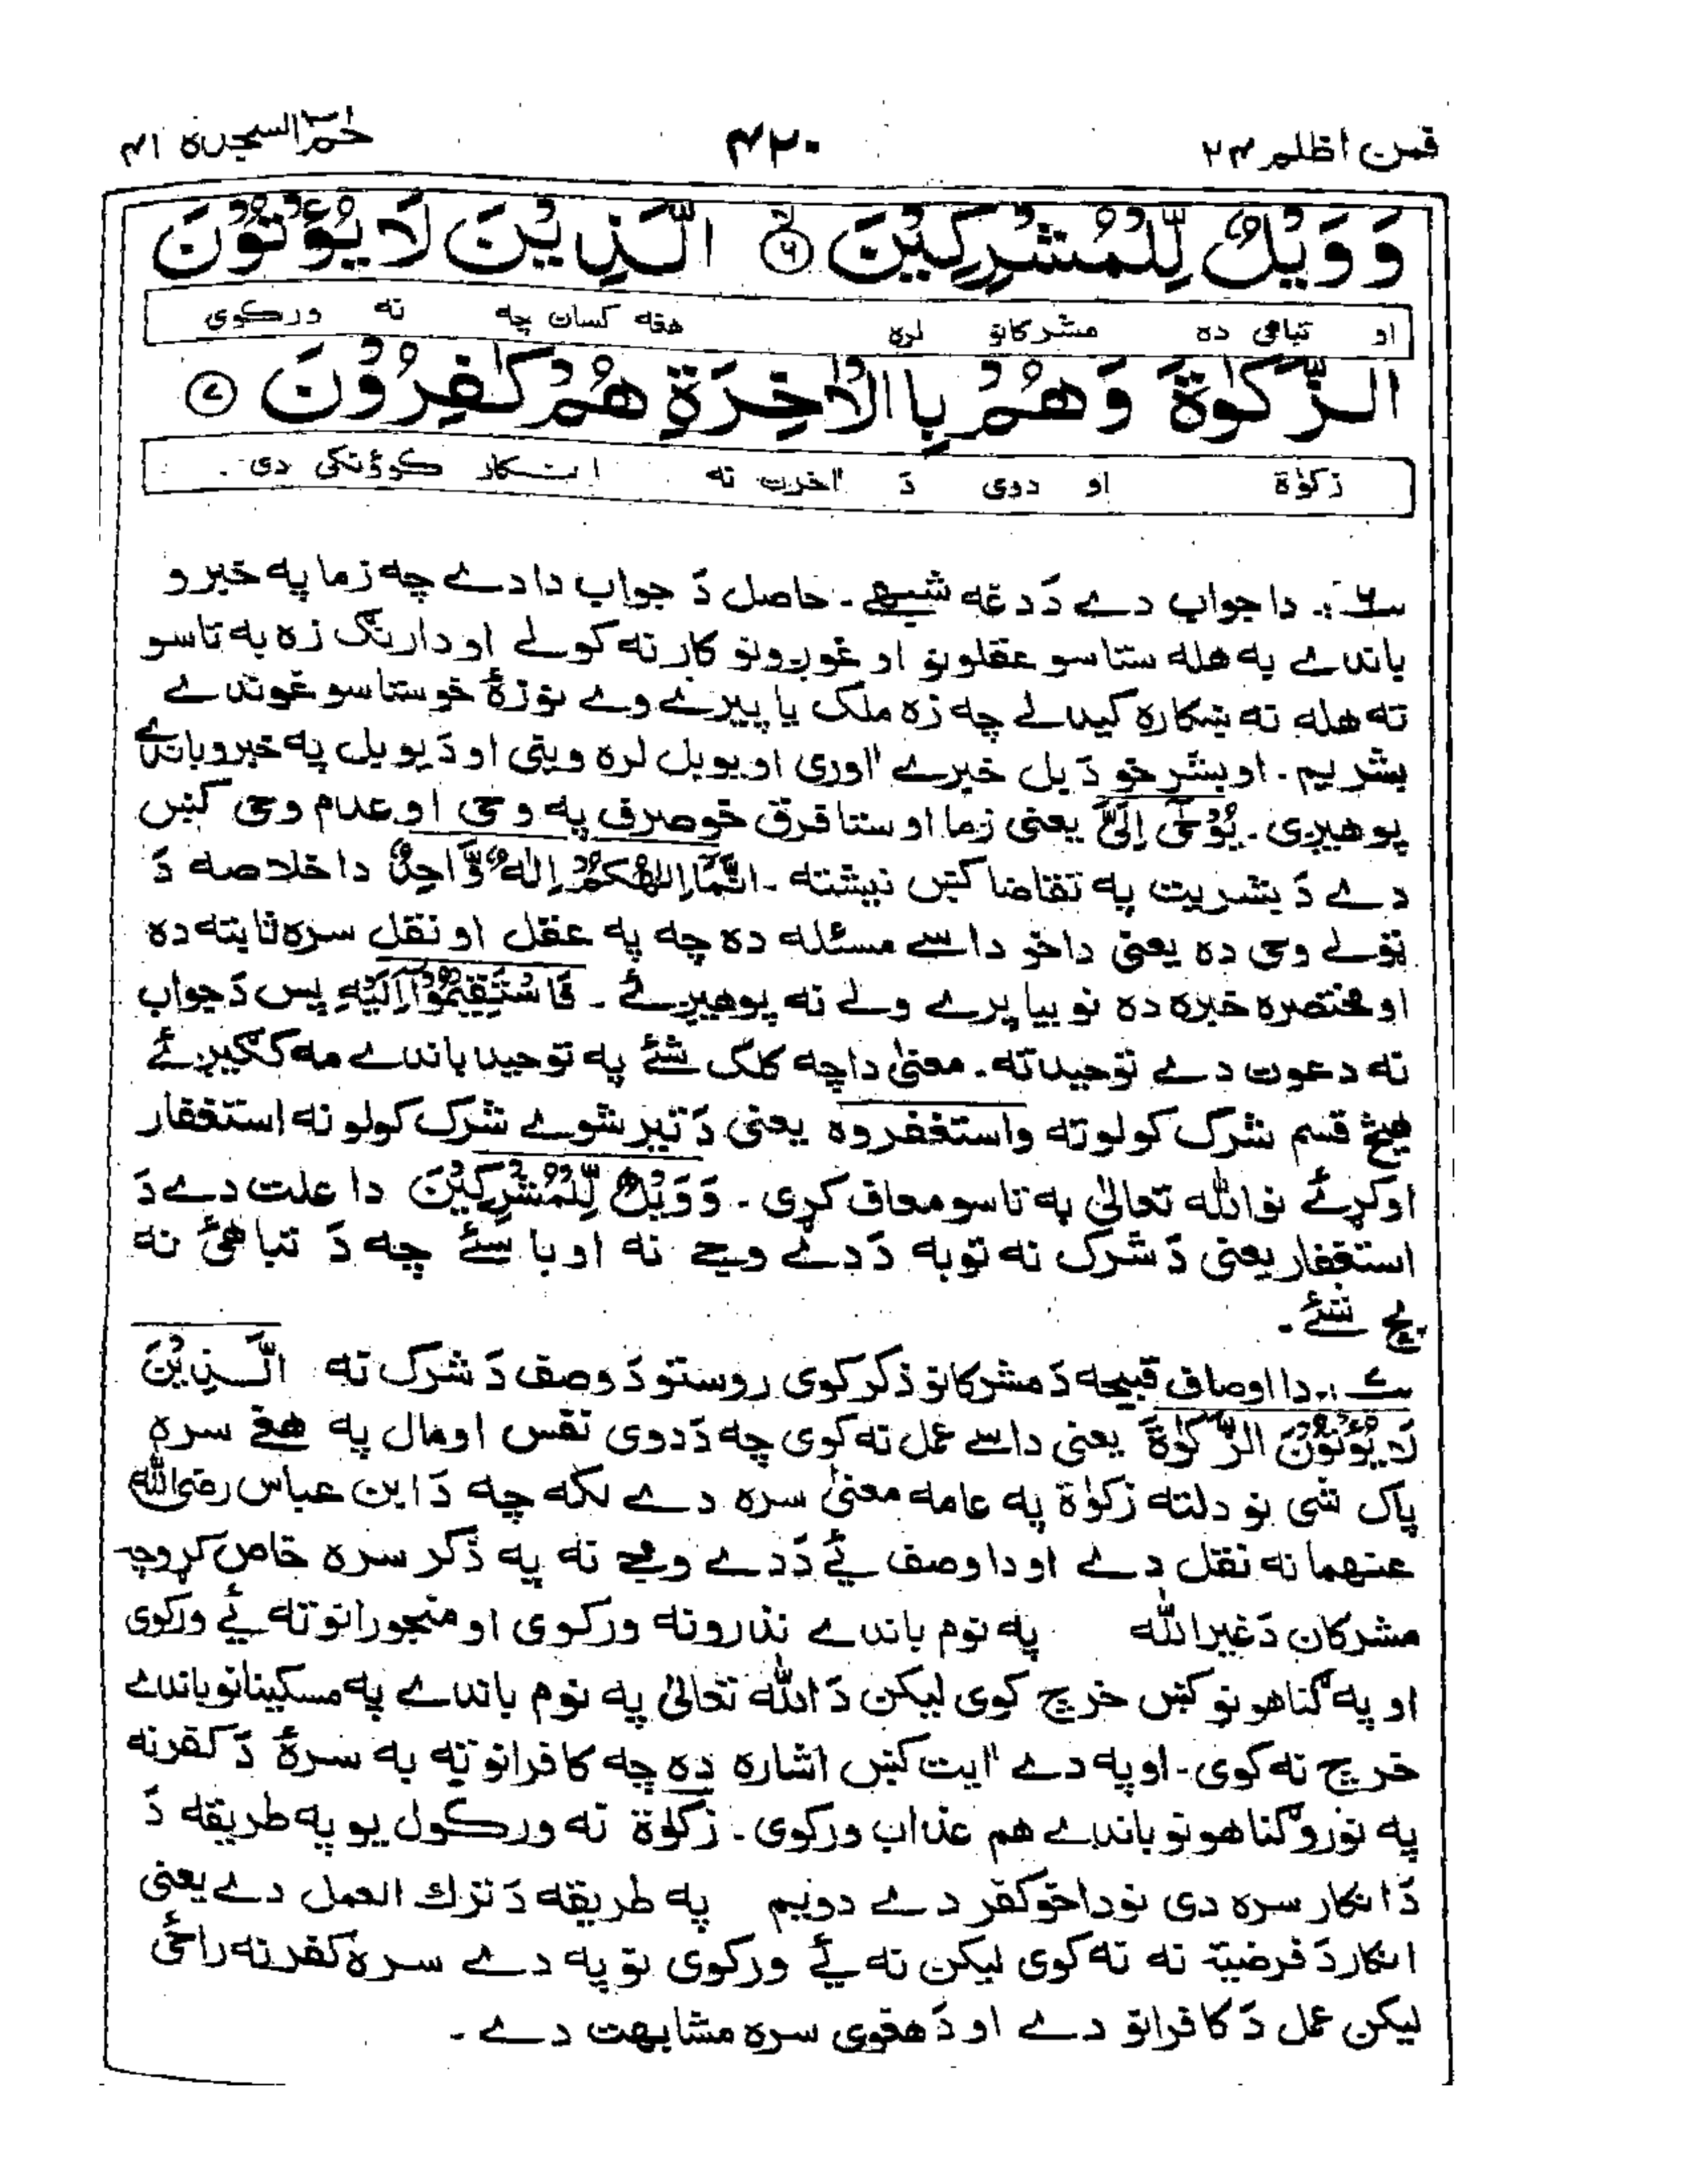 فمن اظلم ۲۴
۴۲۰
حٰمٓ السجدہ ۴۱
وَ وَيْلٌ لِّلْمُشْرِكِيْنَ ۝۶ الَّذِيْنَ لَا يُؤْتُوْنَ
او تباهی ده مشرکانو لره هغه کسان چه نه ورکوی
الزَّكٰوةَ وَهُمْ بِالْاٰخِرَةِ هُمْ كٰفِرُوْنَ ۝۷
زکوٰة او دوی دَ اٰخرت نه انکار کوؤنکی دی۔
۶؎:۔ دا جواب دے دَ دغه شبهے۔ حاصل دَ جواب دا دے چه زما په خبرو
باندے به هله ستاسو عقلونو او غوږونو کار نه کولے او دارنګ زه به تاسو
ته هله نه ښکاره کیدلے چه زه ملک یا پیرے وے نو زۀ خو ستاسو غوندے
بشر یم۔ او بشر خو دَ بل خبرے اٰوری او یو بل لره وینی او دَ یو بل په خبرو باندے
پوهیږی۔ يُوْحٰٓى اِلَيَّ یعنی زما او ستا فرق خو صرف په وحی او عدم وحی کښ
دے دَ بشریت په تقاضا کښ نیشته۔ اَنَّمَا اِلٰهُكُمْ اِلٰهٌ وَّاحِدٌ دا خلاصه دَ
ټولے وحی ده یعنی دا خو داسے مسئله ده چه په عقل او نقل سره ثابته ده
او مختصره خبره ده نو بیا پرے ولے نه پوهیږئے۔ فَاسْتَقِيْمُوْٓا اِلَيْهِ پس دَ جواب
نه دعوت دے توحید ته۔ معنیٰ دا چه کلک شئے په توحید باندے مه ککیږئے
هیڅ قسم شرک کولو ته واستغفروه یعنی دَ تیر شوے شرک کولو نه استغفار
اوکړئے نو الله تعالیٰ به تاسو معاف کړی۔ وَوَيْلٌ لِّلْمُشْرِكِيْنَ دا علت دے دَ
استغفار یعنی دَ شرک نه توبه دَ دے وجے نه اوباسئے چه دَ تباهئ نه
بچ شئے۔
۷؎:۔ دا اوصاف قبیحه دَ مشرکانو ذکر کوی روستو دَ وصف دَ شرک نه الَّذِيْنَ
لَا يُؤْتُوْنَ الزَّكٰوةَ یعنی داسے عمل نه کوی چه دَ دوی نفس او مال په هغے سره
پاک شی نو دلته زکوٰة په عامه معنیٰ سره دے لکه چه دَ ابن عباس رضی الله
عنهما نه نقل دے او دا وصف ئے دَ دے وجے نه په ذکر سره خاص کړو چه
مشرکان دَ غیر الله په نوم باندے نذرونه ورکوی او منجورانو ته ئے ورکوی
او په ګناهونو کښ خرچ کوی لیکن دَ الله تعالیٰ په نوم باندے په مسکینانو باندے
خرچ نه کوی۔ او په دے اٰیت کښ اشاره ده چه کافرانو ته به سرۀ دَ کفر نه
په نورو ګناهونو باندے هم عذاب ورکوی۔ زکوٰة نه ورکول یو په طریقه دَ
دَ انکار سره دی نو دا خو کفر دے دویم په طریقه دَ ترك العمل دے یعنی
انکار دَ فرضیة نه نه کوی لیکن نه ئے ورکوی نو په دے سره کفر نه راځی
لیکن عمل دَ کافرانو دے او دَ هغوی سره مشابهت دے۔